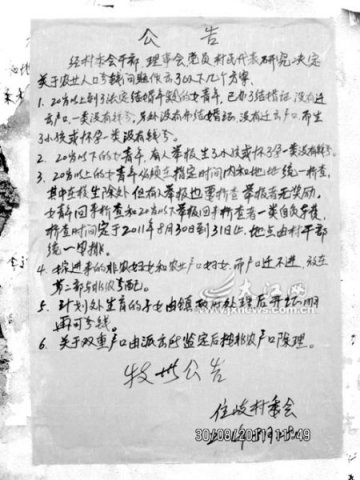 公 告
经村委会干部、理事会党员村民代表研究决定
关于农业人口号钱问题作出了以下几个方案。
1. 20岁以上到了法定结婚年龄的女青年，已办了结婚证，没有迁
出户口，一类没有钱号。另外没有办结婚证，没有迁出户口，而生
了小孩或怀孕一类没有钱号。
2. 20岁以下的女青年，有人举报生了小孩或怀了孕一类没有钱号。
3. 20岁以上的女青年必须在指定时间内和地址统一折查，
其中在校生除外，但有人举报也要折查，举报者无奖励。
女青年回乡折查和20岁以下举报回乡折查者一类自负车费，
折查时间定于2011年8月30日到31日止，地点由村干部
统一安排。
4. 嫁进来的非农妇女和农业户妇女，而户口迁不进，放在
第二部与非农号配。
5. 计划外生育的子女由镇政府处理后开出证明
再可号钱。
6. 关于双重户口由派出所鉴定后按非农户口处理。
特此公告
住岐村委会
大江网
www.jxnews.com.cn
30/08/2011 11:49